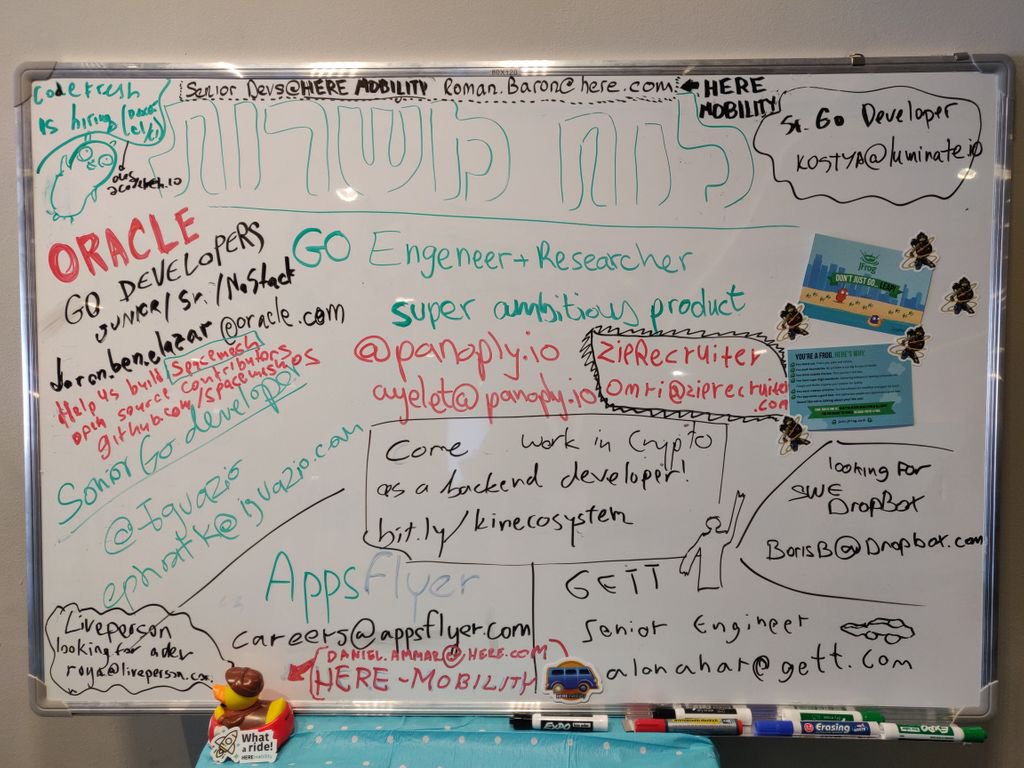 80X120
Senior Devs@HERE MOBILITY Roman.Baron@here.com
HERE
MOBILITY
Codefresh
is hiring
לוח משרות
Sr. Go Developer
KOSTYA@luminate.io
ORACLE
GO DEVELOPERS
JUNIOR/Sr./NoStack
doron.ben.elazar@oracle.com
GO Engeneer+Researcher
super ambitious product
@panoply.io
ayelet@panoply.io
ZipRecruiter
Omri@ziprecruiter
.com
jfrog
DON'T JUST GO... LEAP!
YOU'RE A FROG, HERE'S WHY:
Help us build Spacemesh
open source contributors
github.com/spacemeshos
Senior Go developer
@Iguazio
ephratk@iguazio.com
Come work in Crypto
as a backend developer!
bit.ly/kinecosystem
looking for
SWE
DropBox
BorisB@Dropbox.com
AppsFlyer
careers@appsflyer.com
GETT
Senior Engineer
alonahar@gett.com
Liveperson
looking for a dev
roya@liveperson.com
DANIEL.AMMAR@HERE.COM
HERE-MOBILITY
What
a ride!
HERE mobility
EXPO
Erasing